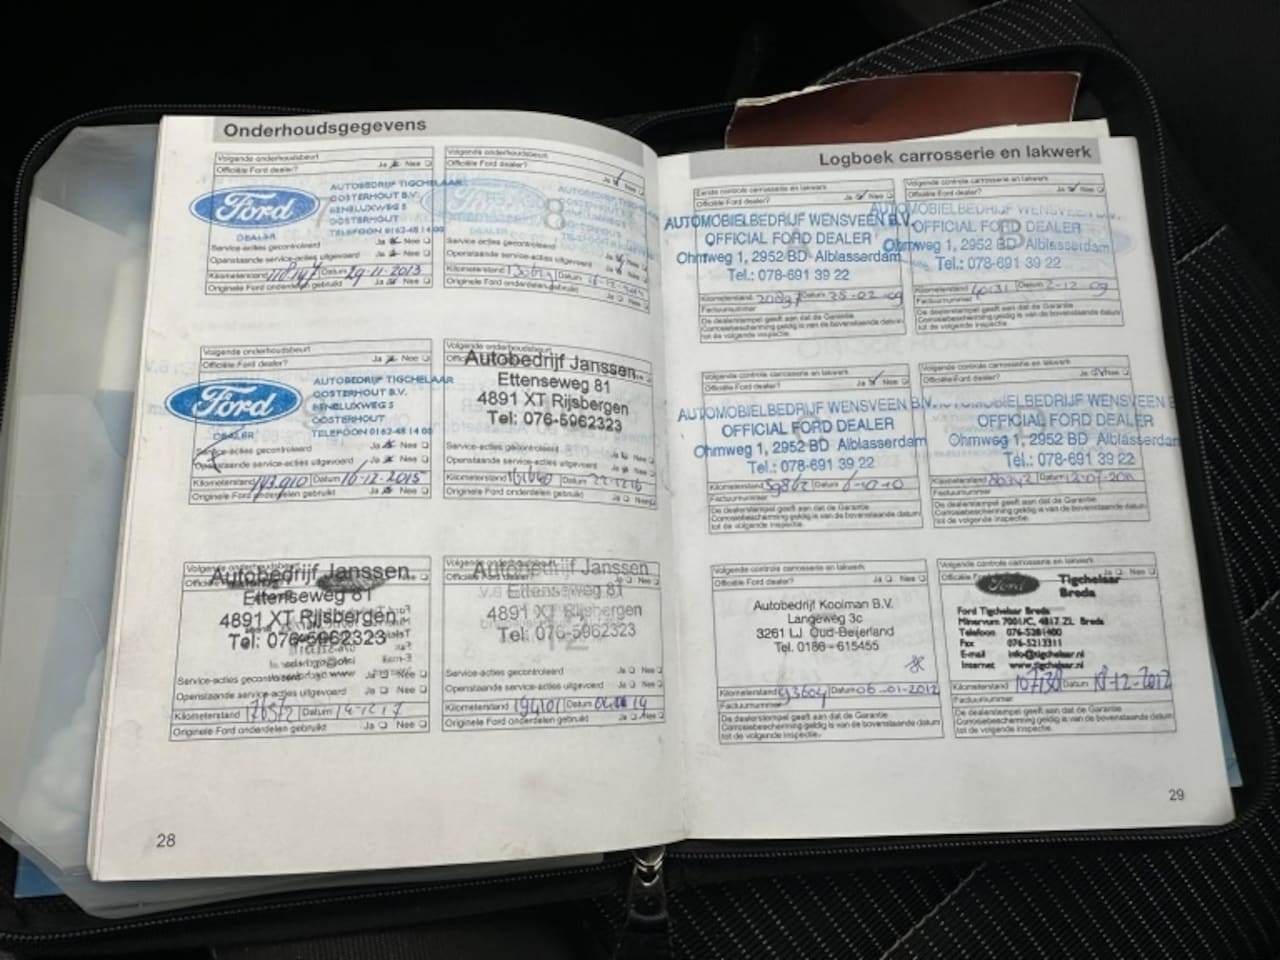 Onderhoudsgegevens
Volgende onderhoudsbeurt
Officiële Ford dealer? Ja Nee
Ford
DEALER
AUTOBEDRIJF TIGCHELAAR
OOSTERHOUT B.V.
BENELUXWEG 5
OOSTERHOUT
TELEFOON 0162-48 14 00
Service-acties gecontroleerd Ja Nee
Openstaande service-acties uitgevoerd Ja Nee
Kilometerstand Datum 29-11-2013
Originele Ford onderdelen gebruikt Ja Nee
Volgende onderhoudsbeurt
Officiële Ford dealer? Ja Nee
8
Service-acties gecontroleerd
Openstaande service-acties uitgevoerd
Kilometerstand Datum
Originele Ford onderdelen gebruikt
Volgende onderhoudsbeurt
Officiële Ford dealer? Ja Nee
Ford
DEALER
AUTOBEDRIJF TIGCHELAAR
OOSTERHOUT B.V.
BENELUXWEG 5
OOSTERHOUT
TELEFOON 0162-48 14 00
Service-acties gecontroleerd Ja Nee
Openstaande service-acties uitgevoerd Ja Nee
Kilometerstand 143.910 Datum 16-12-2015
Originele Ford onderdelen gebruikt Ja Nee
Volgende onderhoudsbeurt
Autobedrijf Janssen
Ettenseweg 81
4891 XT Rijsbergen
Tel: 076-5962323
Service-acties gecontroleerd
Openstaande service-acties uitgevoerd
Kilometerstand Datum 22-12-16
Originele Ford onderdelen gebruikt Ja Nee
Volgende onderhoudsbeurt
Autobedrijf Janssen
Ettenseweg 81
4891 XT Rijsbergen
Tel: 076-5962323
Service-acties gecontroleerd Ja Nee
Openstaande service-acties uitgevoerd Ja Nee
Kilometerstand Datum 14-12-17
Originele Ford onderdelen gebruikt Ja Nee
Volgende onderhoudsbeurt
Autobedrijf Janssen
Ettenseweg 81
4891 XT Rijsbergen
Tel: 076-5962323
12
Service-acties gecontroleerd Ja Nee
Openstaande service-acties uitgevoerd Ja Nee
Kilometerstand Datum
Originele Ford onderdelen gebruikt Ja Nee
28
Logboek carrosserie en lakwerk
Eerste controle carrosserie en lakwerk
Officiële Ford dealer? Ja Nee
AUTOMOBIELBEDRIJF WENSVEEN B.V.
OFFICIAL FORD DEALER
Ohmweg 1, 2952 BD Alblasserdam
Tel.: 078-691 39 22
Kilometerstand Datum 25-02-09
Factuurnummer
De dealerstempel geeft aan dat de Garantie
Corrosiebescherming geldig is van de bovenstaande datum
tot de volgende inspectie.
Volgende controle carrosserie en lakwerk
Officiële Ford dealer? Ja Nee
AUTOMOBIELBEDRIJF WENSVEEN B.V.
OFFICIAL FORD DEALER
Ohmweg 1, 2952 BD Alblasserdam
Tel.: 078-691 39 22
Kilometerstand 40131 Datum 2-12-09
Factuurnummer
De dealerstempel geeft aan dat de Garantie
Corrosiebescherming geldig is van de bovenstaande datum
tot de volgende inspectie.
Volgende controle carrosserie en lakwerk
Officiële Ford dealer? Ja Nee
AUTOMOBIELBEDRIJF WENSVEEN B.V.
OFFICIAL FORD DEALER
Ohmweg 1, 2952 BD Alblasserdam
Tel.: 078-691 39 22
Kilometerstand Datum
Factuurnummer
De dealerstempel geeft aan dat de Garantie
Corrosiebescherming geldig is van de bovenstaande datum
tot de volgende inspectie.
Volgende controle carrosserie en lakwerk
Officiële Ford dealer? Ja Nee
AUTOMOBIELBEDRIJF WENSVEEN B.V.
OFFICIAL FORD DEALER
Ohmweg 1, 2952 BD Alblasserdam
Tel.: 078-691 39 22
Kilometerstand Datum
Factuurnummer
De dealerstempel geeft aan dat de Garantie
Corrosiebescherming geldig is van de bovenstaande datum
tot de volgende inspectie.
Volgende controle carrosserie en lakwerk
Officiële Ford dealer? Ja Nee
Autobedrijf Kooiman B.V.
Langeweg 3c
3261 LJ Oud-Beijerland
Tel. 0186 - 615455
Kilometerstand 93604 Datum 06-01-2012
Factuurnummer
De dealerstempel geeft aan dat de Garantie
Corrosiebescherming geldig is van de bovenstaande datum
tot de volgende inspectie.
Volgende controle carrosserie en lakwerk
Ja Nee
Ford
Tigchelaar
Breda
Ford Tigchelaar Breda
Minervum 7001/C, 4817 ZL Breda
Telefoon 076-5281400
Fax 076-5213311
E-mail info@tigchelaar.nl
Internet www.tigchelaar.nl
Kilometerstand 107138 Datum 18-12-2012
Factuurnummer
De dealerstempel geeft aan dat de Garantie
Corrosiebescherming geldig is van de bovenstaande datum
tot de volgende inspectie.
29